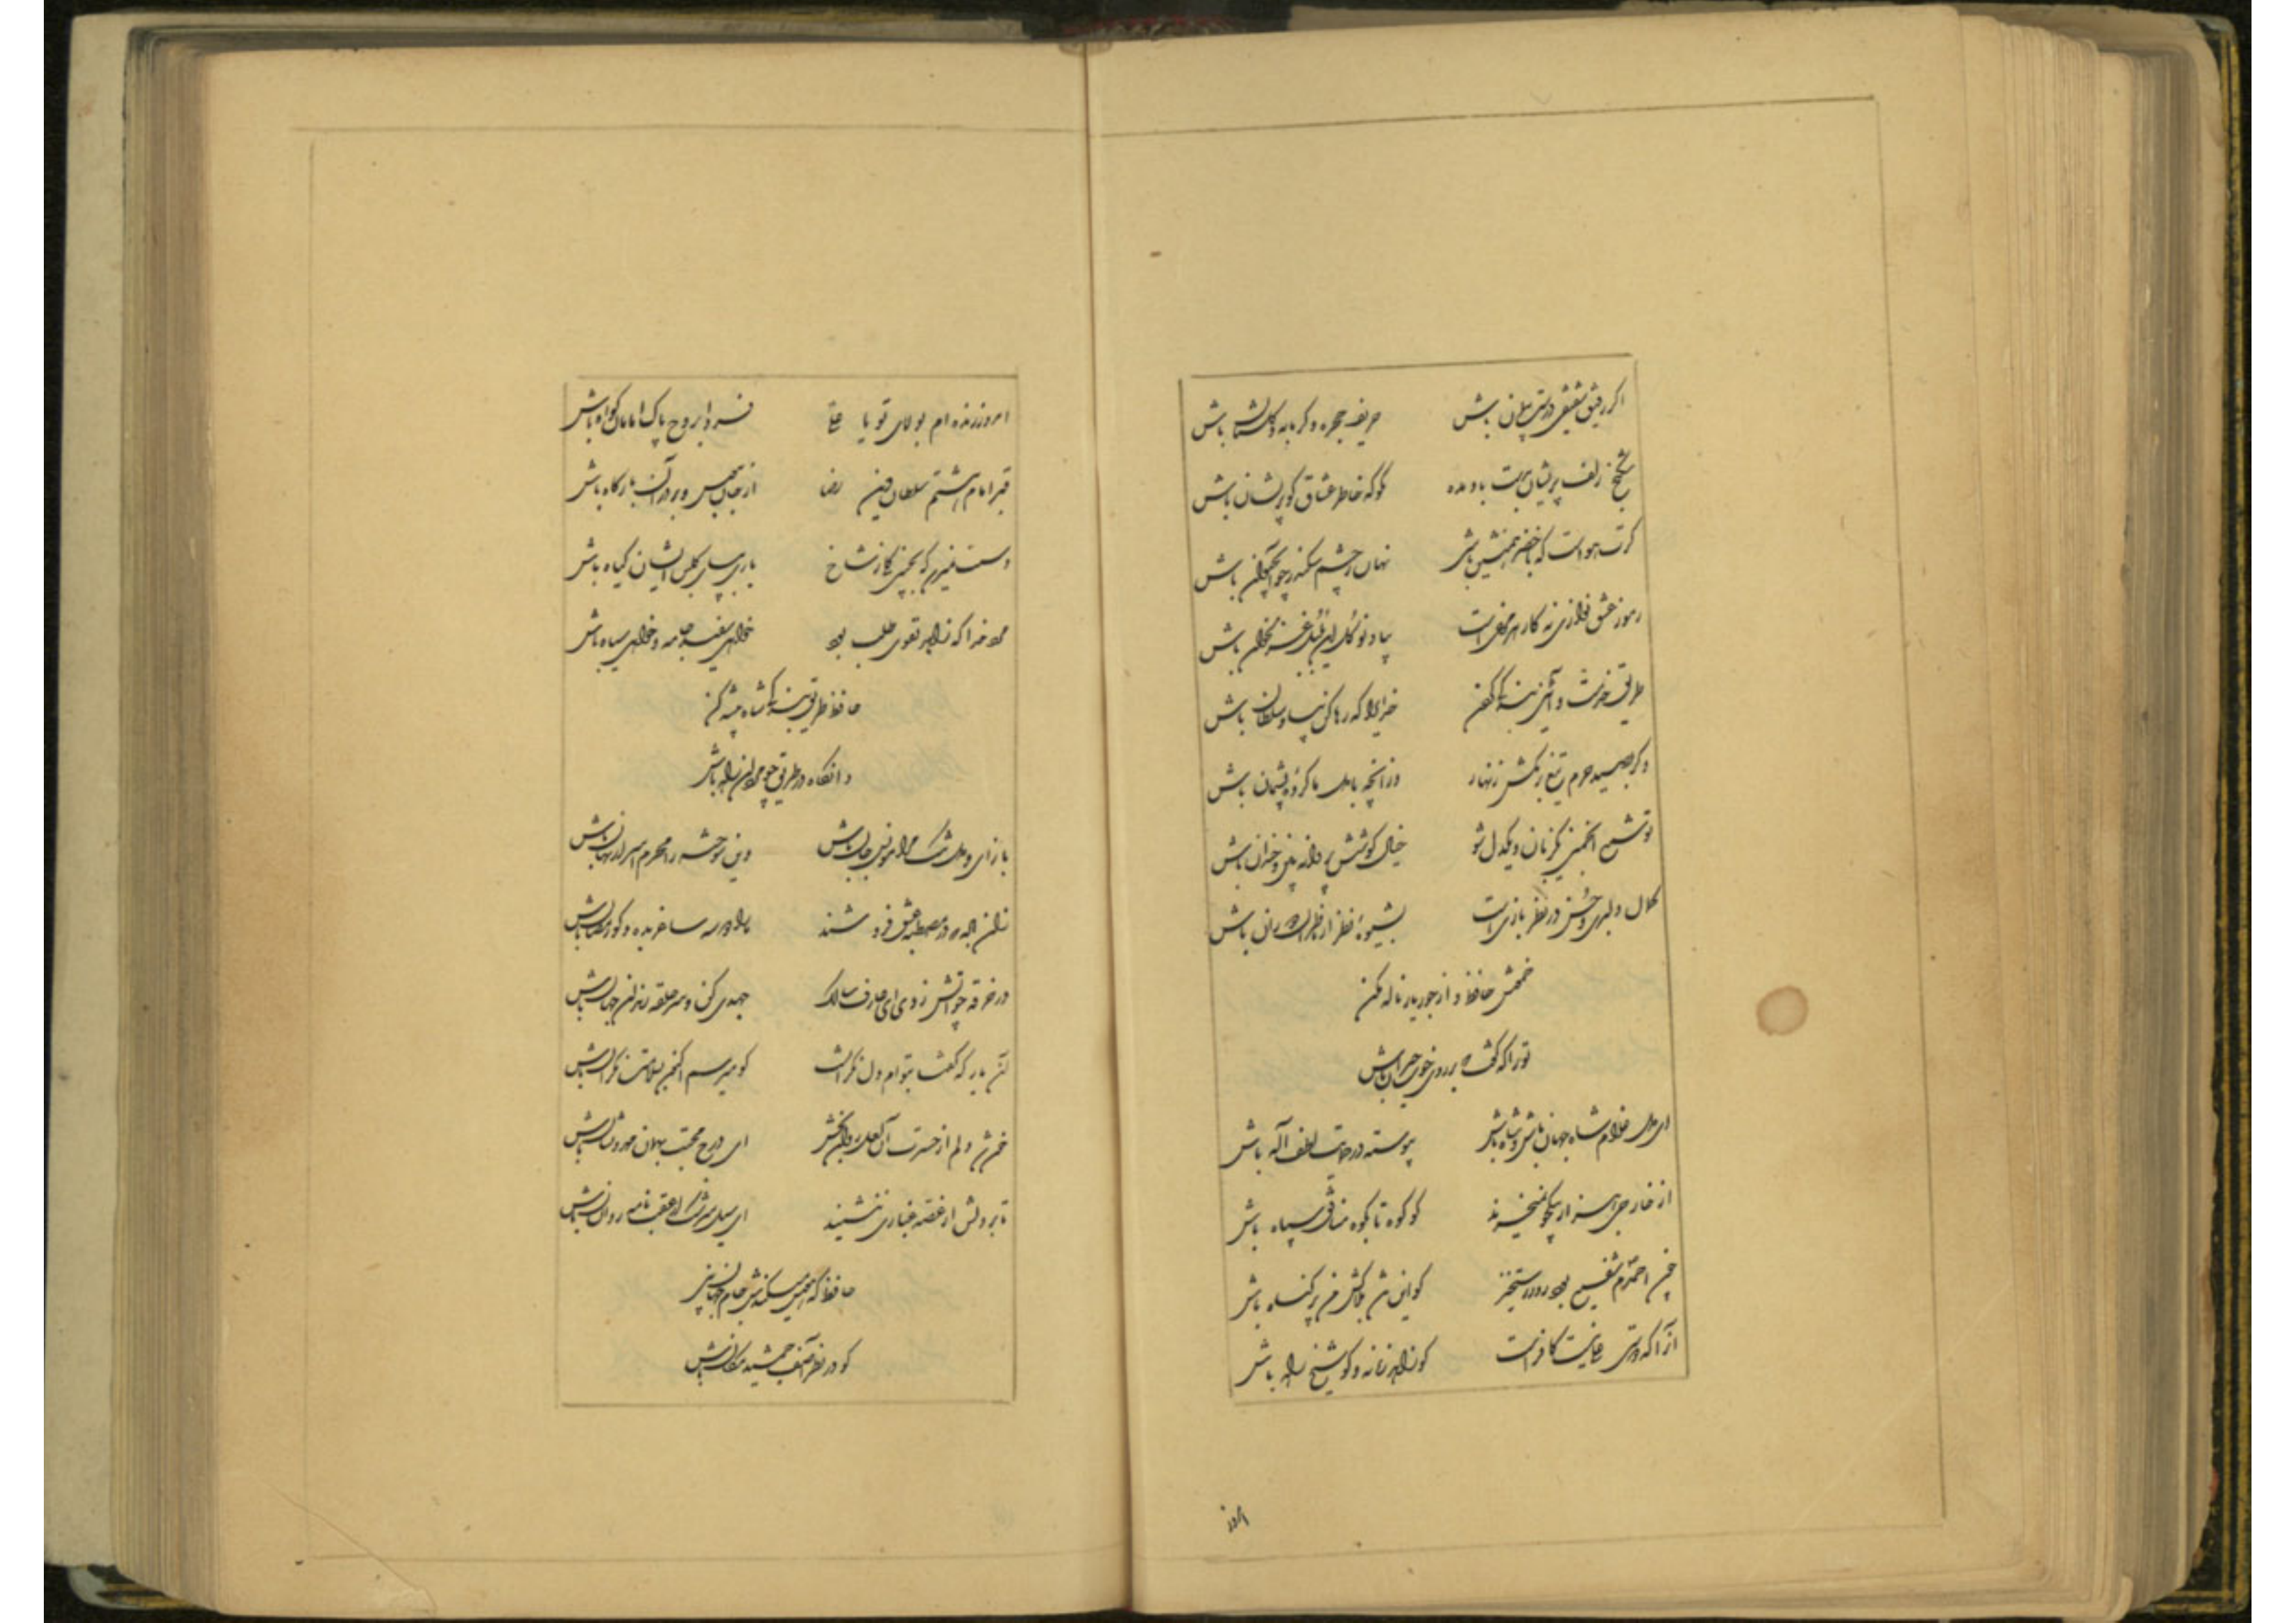 اگر رفیق شفیقی درست پیمان باش حریف حجره و گرمابه و گلستان باش
شکنج زلف پریشان بدست باد مده مگو که خاطر عشاق گو پریشان باش
گرت هواست که با خضر همنشین باشی نهان ز چشم سکندر چو آب حیوان باش
رموز عشق نوازی نه کار هر مرغیست بیا و نوگل این بلبل غزلخوان باش
طریق خدمت و آیین بندگی کردن خدایرا که رها کن بما و سلطان باش
دگر بصید حرم تیغ برمکش زنهار وز آنچه با دل ما کرده پشیمان باش
تو شمع انجمنی یکزبان و یکدل شو خیال کوشش پروانه بین و خندان باش
کمال دلبری و حسن در نظر بازیست بشیوهٔ نظر از ناظران دوران باش
خمش حافظ و از جور یار ناله مکن
تو را که گفت که بر روی خوب حیران باش
ای دل غلام شاه جهان باش و شاه باش پیوسته در حمایت لطف اله باش
از خارجی هزار بیکجو نمیخرند گو کوه تا بکوه منافق سپاه باش
چون احمدم شفیع بود روز رستخیز گو این تن بلاکش من پر گناه باش
آنرا که دوستی علی نیست کافر است گو زاهد زمانه و گو شیخ راه باش
امروز
امروز زنده ام بولای تو یا علی فردا بروح پاک امامان گواه باش
قبر امام هشتم سلطان دین رضا از جان ببوس و بر در آن بارگاه باش
دستت نمیرسد که بچینی گلی ز شاخ باری بپای گلبن ایشان گیاه باش
مرد خدا که زاهد تقوی طلب بود خواهی سفید جامه و خواهی سیاه باش
حافظ طریق بندگی شاه پیشه کن
وانگاه در طریق چو مردان راه باش
بازآی و دل تنگ مرا مونس جان باش وین سوخته را محرم اسرار نهان باش
زان باده که در مصطبه عشق فروشند ما را دو سه ساغر بده و گو رمضان باش
در خرقه چو آتش زدی ای عارف سالک جهدی کن و سرحلقه رندان جهان باش
آن یار که گفتا بتوام دل نگرانست گو میرسم اکنون بسلامت نگران باش
خون شد دلم از حسرت آن لعل روان بخش ای درج محبت بهمان مهر و نشان باش
تا بر دلش از غصه غباری ننشیند ای سیل سرشک از عقب نامه روان باش
حافظ که هوس میکندش جام جهان بین
گو در نظر آصف جمشید مکان باش